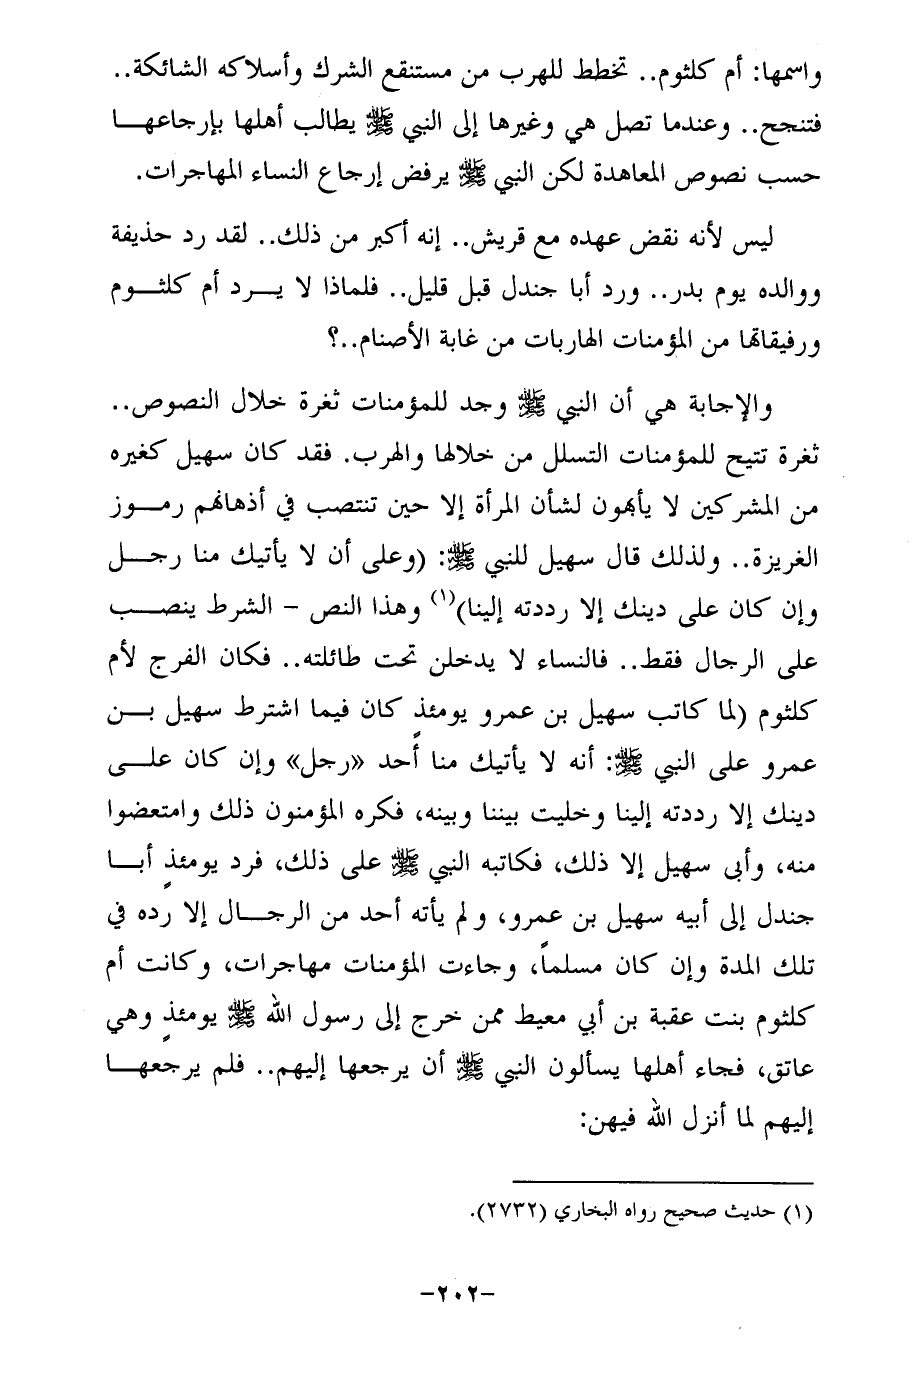 واسمها: أم كلثوم.. تخطط للهرب من مستنقع الشرك وأسلاكه الشائكة..
فتنجح.. وعندما تصل هي وغيرها إلى النبي ﷺ يطالب أهلها بإرجاعهـــا
حسب نصوص المعاهدة لكن النبي ﷺ يرفض إرجاع النساء المهاجرات.
ليس لأنه نقض عهده مع قريش.. إنه أكبر من ذلك.. لقد رد حذيفة
ووالده يوم بدر.. ورد أبا جندل قبل قليل.. فلماذا لا يـــرد أم كلثـــوم
ورفيقاتها من المؤمنات الهاربات من غابة الأصنام..؟
والإجابة هي أن النبي ﷺ وجد للمؤمنات ثغرة خلال النصوص..
ثغرة تتيح للمؤمنات التسلل من خلالها والهرب. فقد كان سهيل كغيره
من المشركين لا يأبهون لشأن المرأة إلا حين تنتصب في أذهانهم رمـــوز
الغريزة.. ولذلك قال سهيل للنبي ﷺ: (وعلى أن لا يأتيك منا رجـــل
وإن كان على دينك إلا رددته إلينا)(١) وهذا النص - الشرط ينصـــب
على الرجال فقط.. فالنساء لا يدخلن تحت طائلته.. فكان الفرج لأم
كلثوم (لما كاتب سهيل بن عمرو يومئذٍ كان فيما اشترط سهيل بـــن
عمرو على النبي ﷺ: أنه لا يأتيك منا أحد «رجل» وإن كان علـــى
دينك إلا رددته إلينا وخليت بيننا وبينه، فكره المؤمنون ذلك وامتعضوا
منه، وأبى سهيل إلا ذلك، فكاتبه النبي ﷺ على ذلك، فرد يومئذٍ أبـــا
جندل إلى أبيه سهيل بن عمرو، ولم يأته أحد من الرجـــال إلا رده في
تلك المدة وإن كان مسلماً، وجاءت المؤمنات مهاجرات، وكانت أم
كلثوم بنت عقبة بن أبي معيط ممن خرج إلى رسول الله ﷺ يومئذٍ وهي
عاتق، فجاء أهلها يسألون النبي ﷺ أن يرجعها إليهم.. فلم يرجعهـــا
إليهم لما أنزل الله فيهن:
(١) حديث صحيح رواه البخاري (٢٧٣٢).
-٢٠٢-